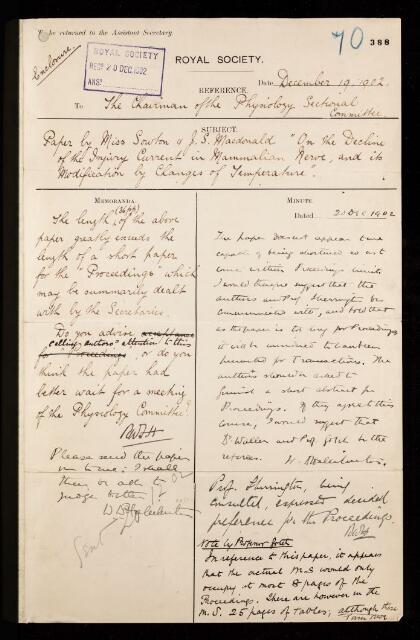 To be returned to the Assistant Secretary.
Enclosure.
70 388
ROYAL SOCIETY
REC? 20 DEC. 1902
ANSD
ROYAL SOCIETY.
Date December 19, 1902.
REFERENCE.
To The Chairman of the Physiology Sectional
Committee
SUBJECT.
Paper by Miss Sowton & J. S. Macdonald "On the Decline
of the Injury Current in Mammalian Nerve, and its
Modification by Changes of Temperature".
MEMORANDA.
The length (36 pp) of the above
paper greatly exceeds the
length of a short paper
for the "Proceedings" which
may be summarily dealt
with by the Secretaries.
Do you advise acceptance
calling authors' attention to this
for "Proceedings", or do you
think the paper had
better wait for a meeting
of the Physiology Committee?
RWFH
Please send the paper
on to me; I shall
then be able to
judge better
W D Halliburton
Sent
MINUTE
Dated 20 Dec 1902
The paper does not appear to me
capable of being shortened so as to
come within Proceedings limits
I would therefore suggest that the
authors and Prof. Sherrington be
communicated with, and told that
as the paper is too long for Proceedings
it will be considered to have been
presented for Transactions. The
authors should be asked to
furnish a short abstract for
Proceedings. If they agree to this
course, I would suggest that
Dr Waller and Prof. Gotch be the
referees. W. D. Halliburton.
Prof. Sherrington, being
consulted, expressed decided
preference for the Proceedings.
RWFH
Note by Professor Gotch
In reference to this paper, it appears
that the actual M.S would only
occupy at most 8 pages of the
Proceedings. There are however in the
M.S. 25 pages of Tables; although these